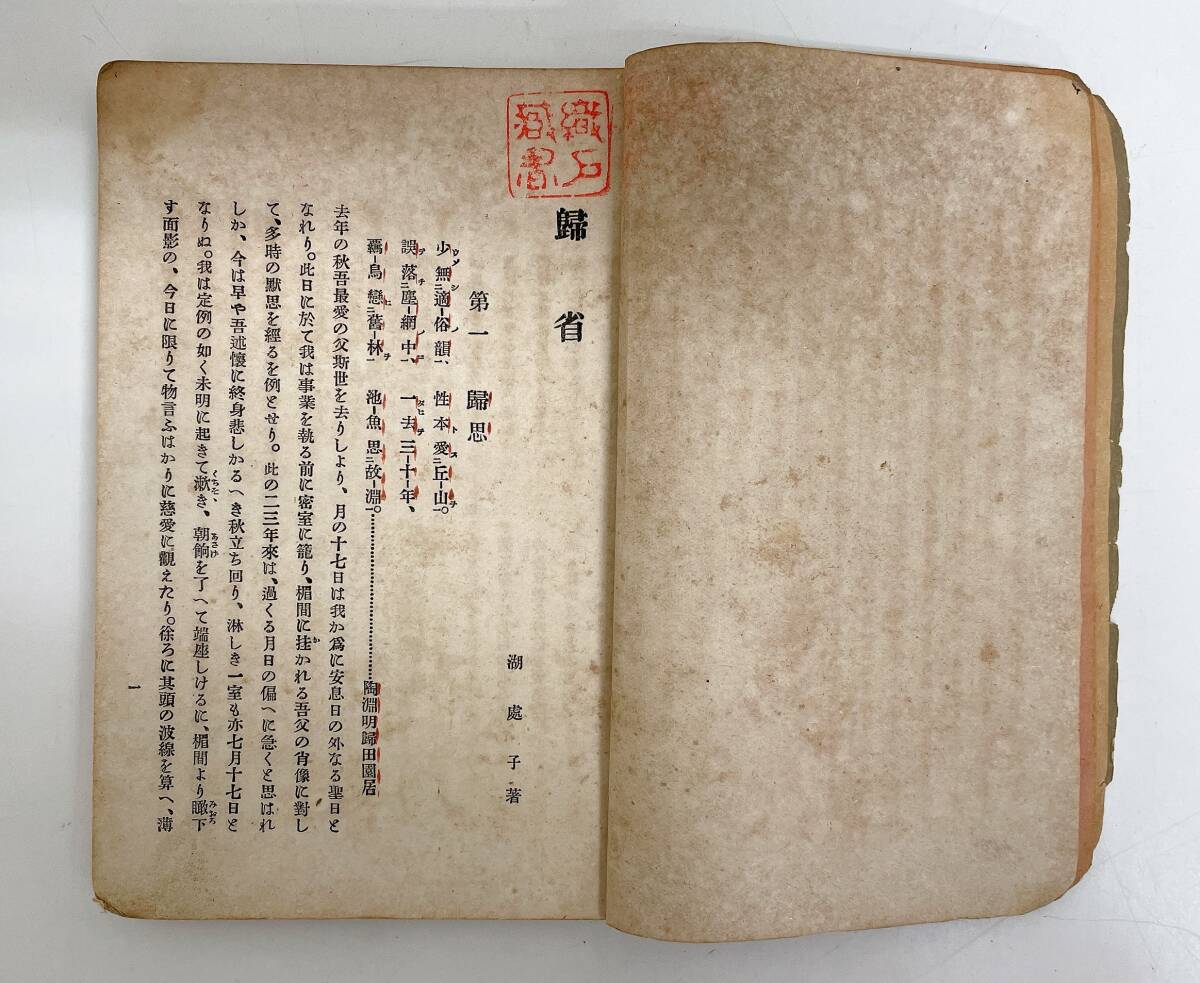 織戸
蔵書
歸省
湖處子著
第一 歸思
少無二適-俗韻一、 性本愛二丘-山一。
誤落二塵-網中一、 一去三-十-年、
羈-鳥戀二舊-林一 池-魚思二故-淵一。…………陶淵明歸田園居
去年の秋吾最愛の父斯世を去りしより、月の十七日は我か爲に安息日の外なる聖日と
なれり。此日に於て我は事業を執る前に密室に籠り、楣間に挂かれる吾父の肖像に對し
て、多時の默思を經るを例とせり。此の二三年來は、過くる月日の偏へに急くと思はれ
しか、今は早や吾述懷に終身悲しかるへき秋立ち回り、淋しき一室も亦七月十七日と
なりぬ。我は定例の如く未明に起きて漱き、朝餉を了へて端座しけるに、楣間より瞰下
す面影の、今日に限りて物言ふはかりに慈愛に觀えたり。徐ろに其頭の波線を算へ、薄
一